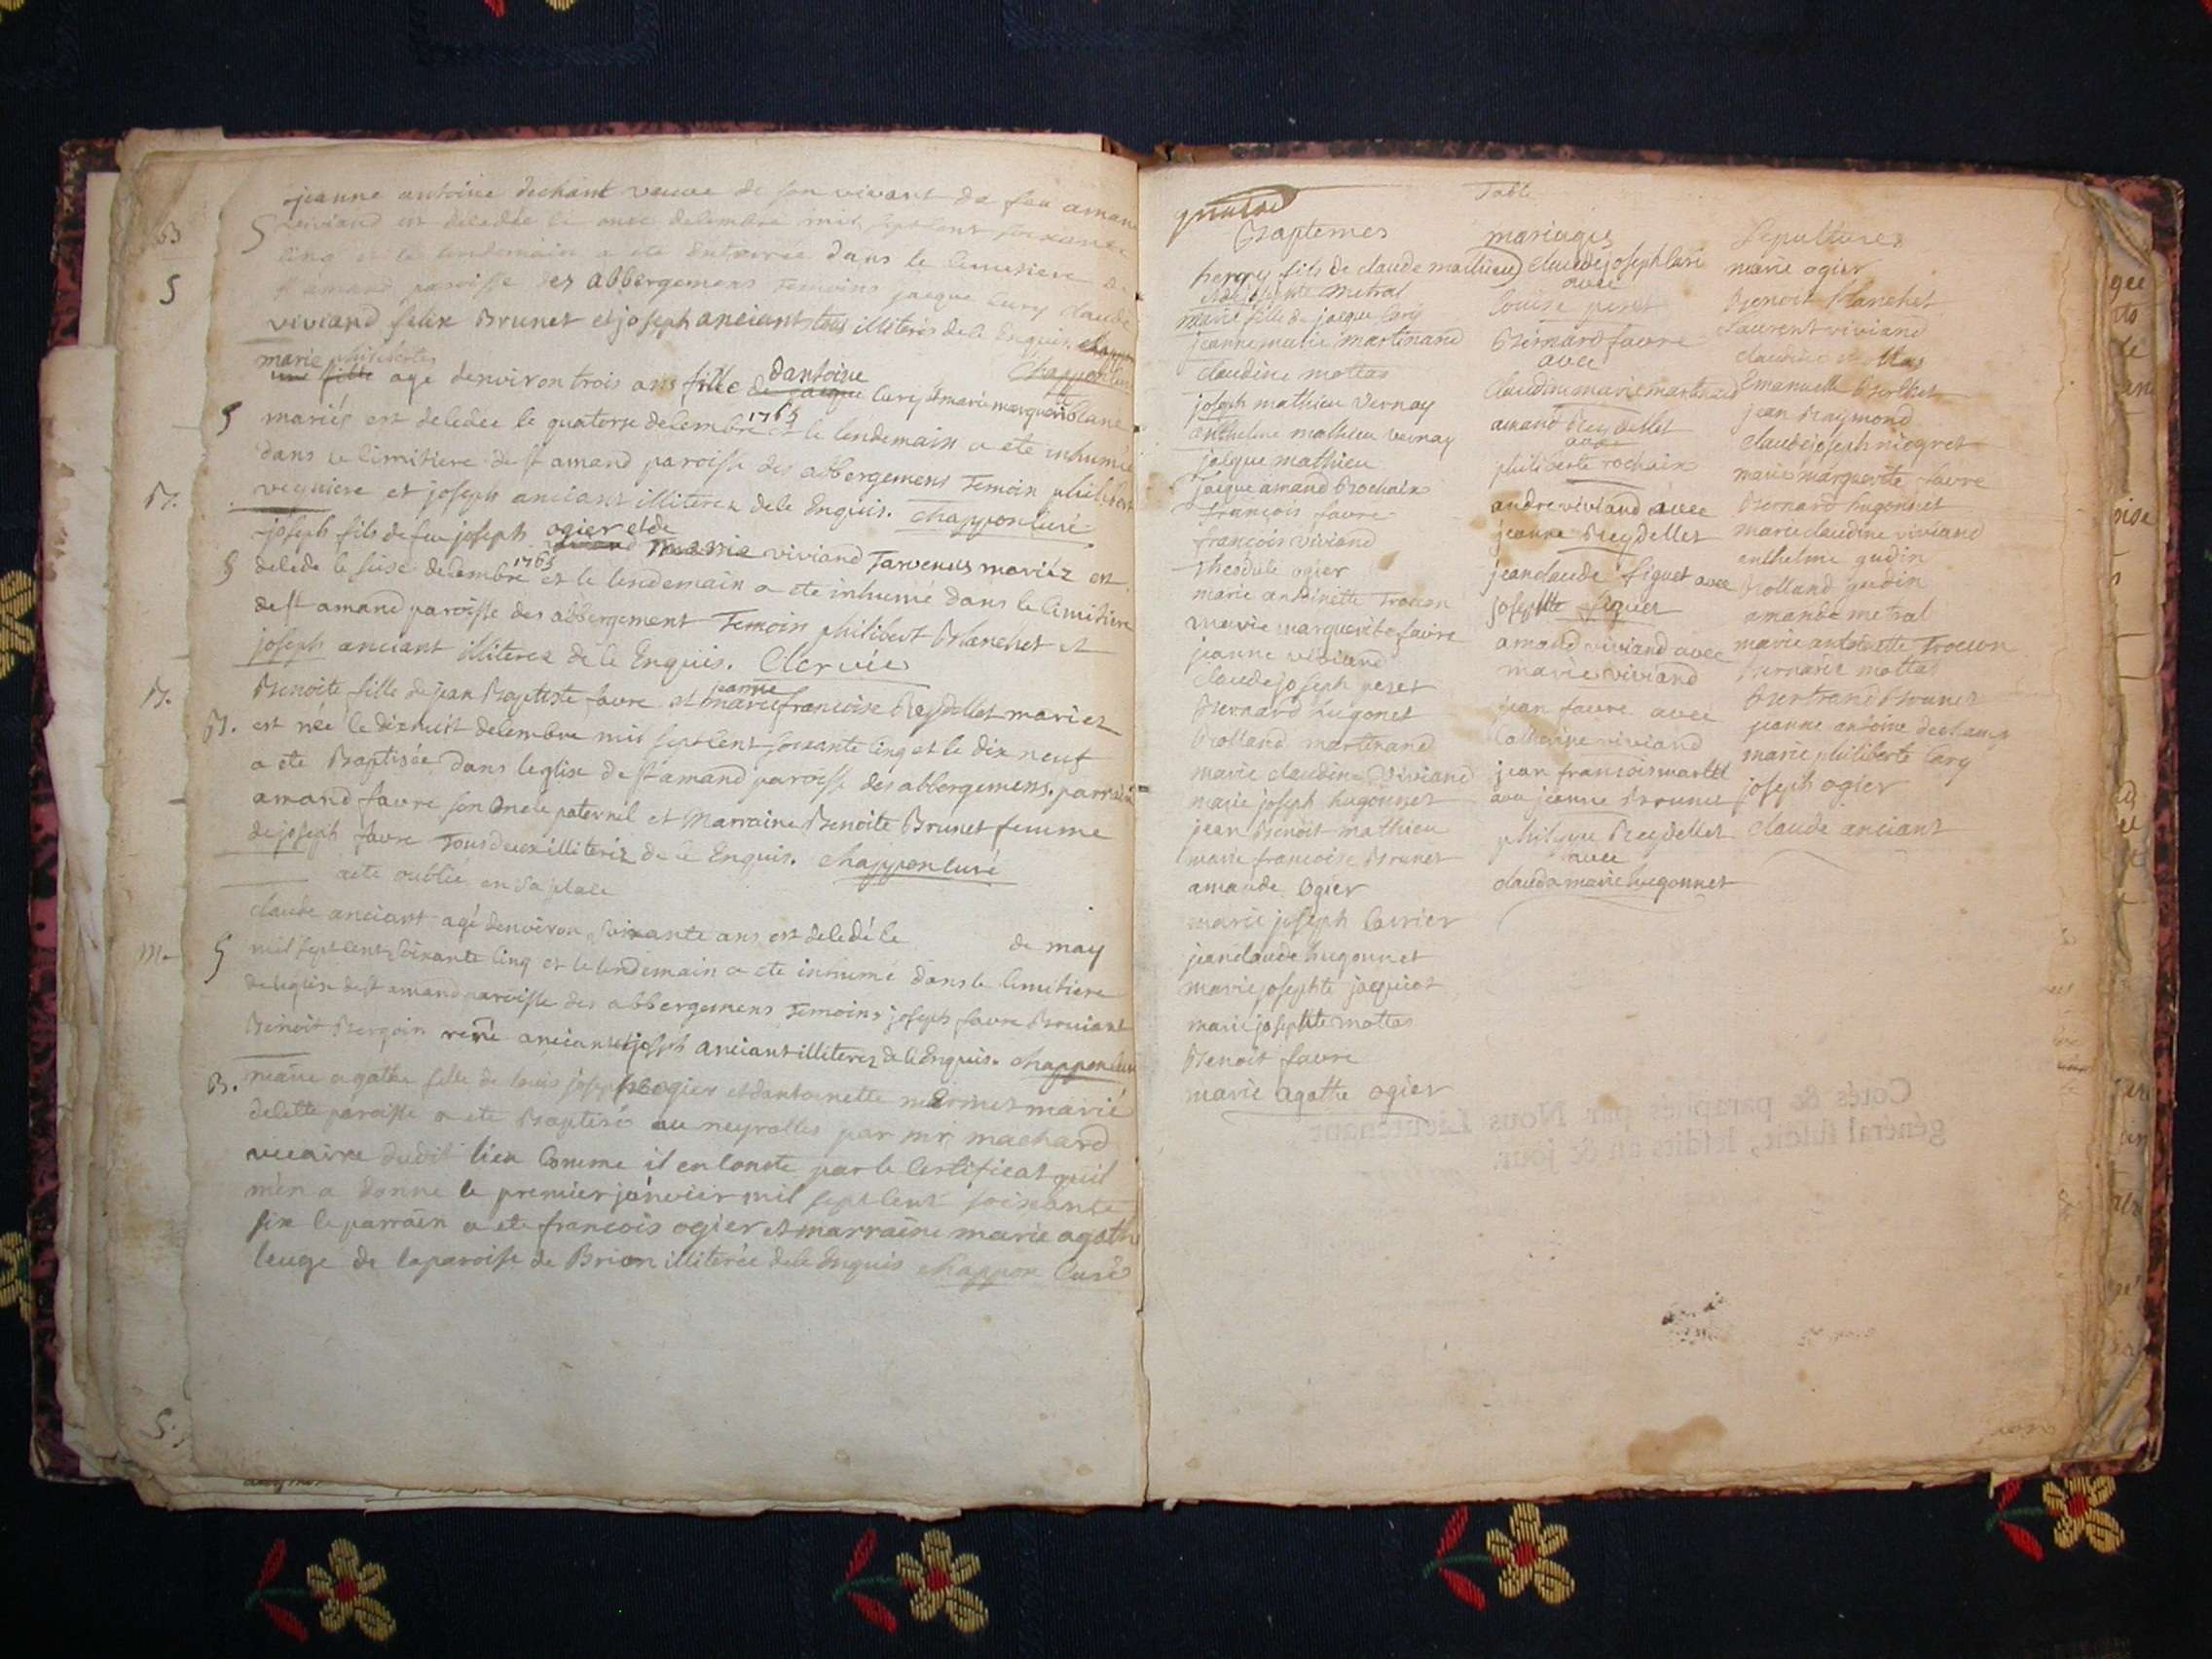 jeanne antoine dechant veuve de son vivant de feu aman
S viviand est decedée le onze decembre mil sept cent soixante
cinq et le lendemain a ete enterrée dans le cimetiere de
st amand paroisse des abbergemens temoins jacque cury claude
viviand felix Brunet et joseph anciant tous illiterés de ce Enquis
chappon curé
marie philiberte age denviron trois ans fille dantoine cury et marie marguerite blanc
S mariés est decedee le quatorze decembre 1765 et le lendemain a ete inhumée
dans le cimitiere de st amand paroisse des abbergemens temoin philibert
veguiere et joseph anciant illiterez de ce Enquis. chappon curé
joseph fils de feu joseph ogier et de marie viviand Tarvenus mariéz est
S decede le seise decembre 1765 et le lendemain a ete inhumé dans le cimitiere
de st amand paroisse des abbergement Temoin philibert Blanchet et
joseph anciant illiterez de ce Enquis. Clervie
Benoite fille de jean Baptiste favre et jeanne francoise Reydellet mariez
B. est née le dixhuit decembre mil sept cent soixante cinq et le dix neuf
a ete Baptisée dans leglise de st amand paroisse des abbergemens, parrain
amand favre son oncle paternel et Marraine Benoite Brunet femme
de joseph favre Tous deux illiteréz de ce Enquis. chappon curé
acte oublié en sa place
claude anciant agé denviron soixante ans est decedé le de may
S mil sept cent soixante cinq et le lendemain a ete inhumé dans le cimitiere
de leglise de st amand paroisse des abbergemens Temoins joseph favre
Benoit Bergoin rené anciant et joseph anciant illiterez de ce Enquis. chappon curé
B. marie agathe fille de louis joseph ogier et dantoinette mermet marié
de cette paroisse a ete Baptisée au neyrolles par mr machard
vicaire dudit lieu comme il en conste par le certificat quil
men a donne le premier janvier mil sept cent soixante
six le parrain a ete francois ogier et marraine marie agathe
leuge de la paroise de Brion illiterée de ce Enquis chappon curé
Table
Baptemes
henry fils de claude mathieu
et de josephte metral
marie fille de jacque cury
jeanne marie martinand
claudine mottas
joseph mathieu vernay
anthelme mathieu vernay
jacque mathieu
jacque amand Brochain
francois favre
francois viviand
Theodule ogier
marie antoinette Trocon
marie marguerite favre
jeanne viviand
claude joseph peret
Bernard hugonet
Rolland martinand
marie claudine viviand
marie joseph hugonnet
jean Benoit mathieu
marie francoise Brunet
amande ogier
marie joseph carrier
jean claude hugonnet
marie josephte jacquiot
marie josephte mottas
Benoit favre
marie agathe ogier
mariages
claude joseph curi
avec
Louise peret
Bernard favre
avec
claudine marie martinand
amand Reydellet
avec
philiberte rochaix
andre viviand avec
jeanne Reydellet
jean claude siguet avec
josephte
amand viviand avec
marie viviand
jean favre avec
Catherine viviand
jean francois martel
avec jeanne Brunet
philippe Reydellet
avec
claudo marie hugonnet
Sepultures
marie ogier
Benoit Blanchet
Laurent viviand
claudine mottas
Emanuelle
jean Raymond
claude joseph niogret
marie marguerite favre
Bernard hugonnet
marie claudine viviand
enthelme gudin
Rolland gudin
amande metral
marie antoinette Trocon
Bernard mottas
Bertrand Brunet
jeanne antoine dechamp
marie philiberte cury
joseph ogier
claude anciant